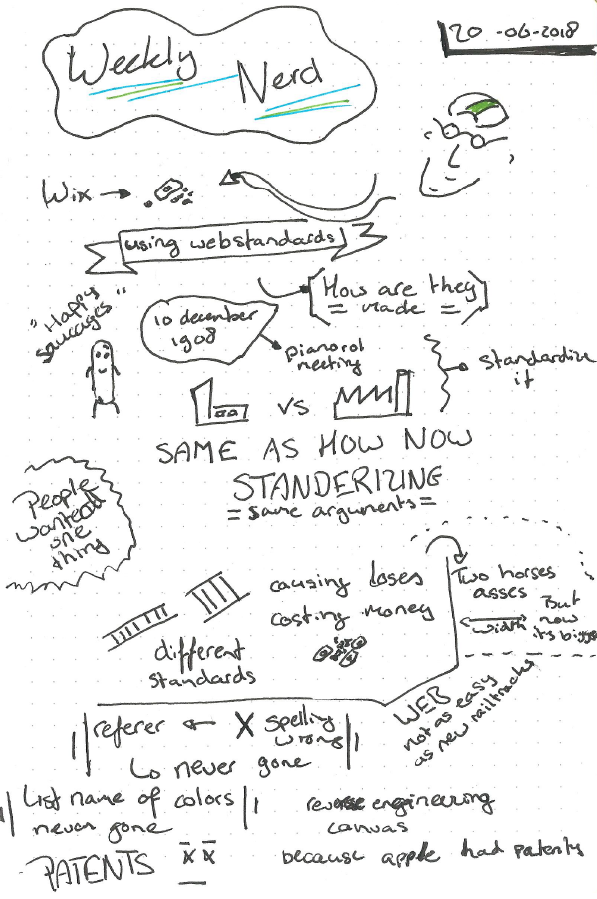 Weekly
Nerd
20-06-2018
Wix →
using webstandards
"Happy
saucages"
How are they
= made =
10 december
1908
pianorol
meeting
vs
Standardize
it
SAME AS HOW NOW
STANDERIZING
= same arguments =
People
wanted
one
thing
causing loses
costing money
different
standards
Two horses
asses
width
But
now
its bigger
WEB
not as easy
as new railtracks
referer ← X spelling
wrong
↳ never gone
List name of colors
never gone
reverse engineering
canvas
PATENTS
because apple had patents